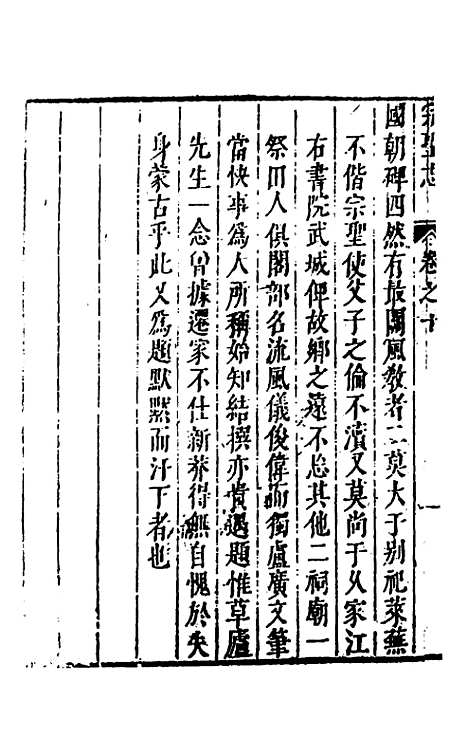 宗聖志 卷之十 一
國朝碑四然有最關風教者二莫大于别祀萊蕪
不偕宗聖使父子之倫不瀆又莫尚于久家江
右書院武城俾故鄉之遠不忘其他二祠廟一
祭田人俱閣部名流風儀俊偉而獨盧廣文筆
當快事爲人所稱始知結撰亦貴遇題惟草廬
先生一念曾據遷家不仕新莽得無自愧於失
身蒙古乎此又爲題默黙而汗下者也